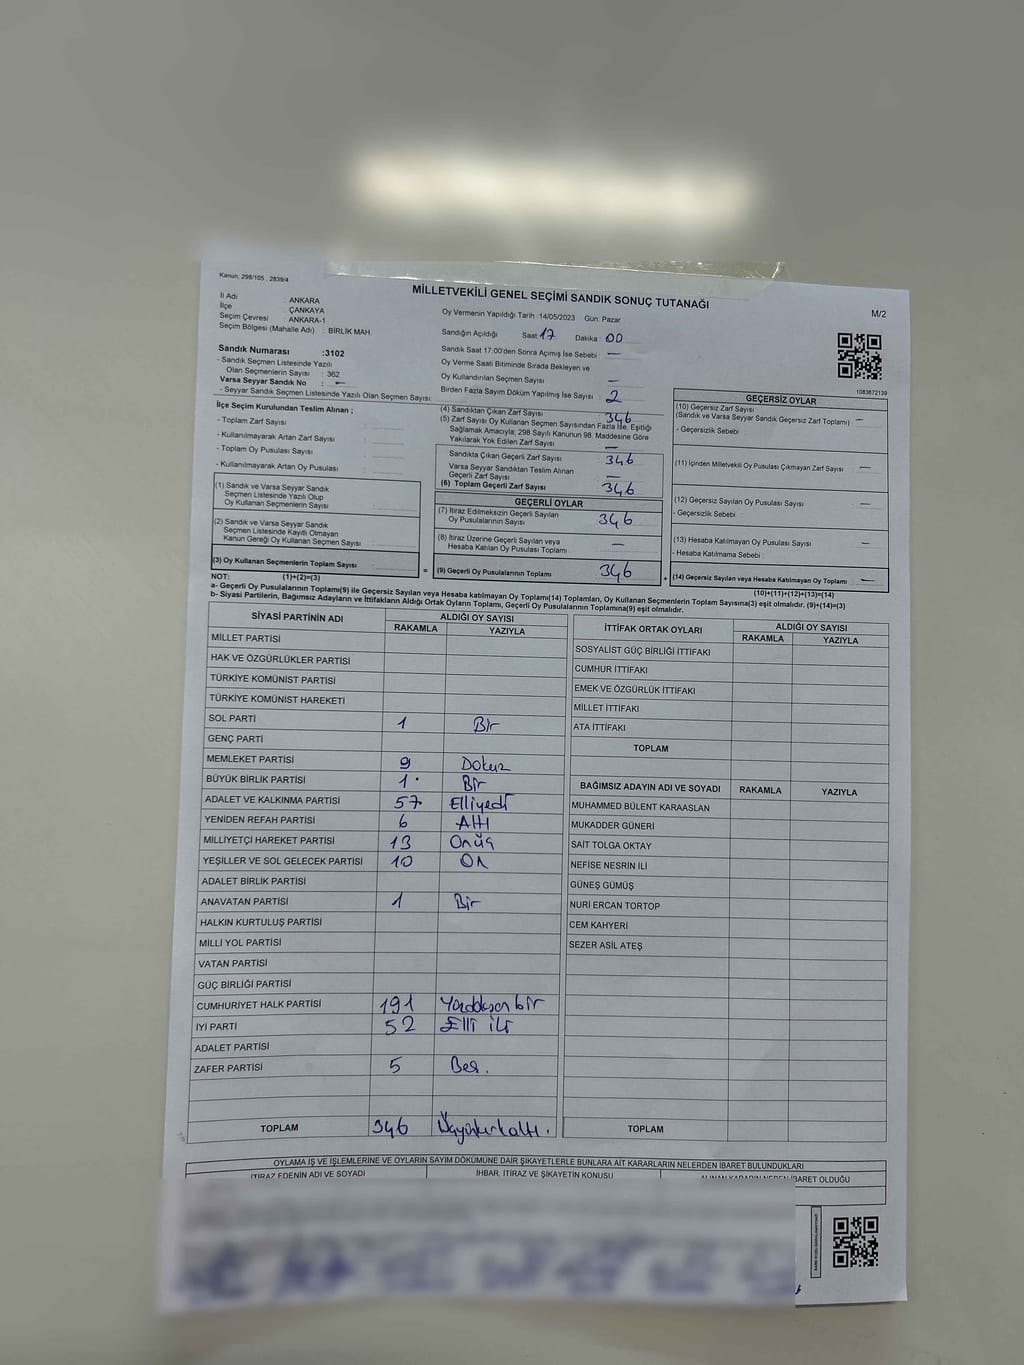 Kanun: 298/105 , 2839/4
MİLLETVEKİLİ GENEL SEÇİMİ SANDIK SONUÇ TUTANAĞI
M/2
İl Adı : ANKARA
İlçe : ÇANKAYA
Seçim Çevresi : ANKARA-1
Seçim Bölgesi (Mahalle Adı) : BİRLİK MAH.
Sandık Numarası :3102
- Sandık Seçmen Listesinde Yazılı
Olan Seçmenlerin Sayısı : 362
Varsa Seyyar Sandık No : —
- Seyyar Sandık Seçmen Listesinde Yazılı Olan Seçmen Sayısı:
Oy Vermenin Yapıldığı Tarih :14/05/2023 Gün: Pazar
Sandığın Açıldığı Saat 17 Dakika 00
Sandık Saat 17:00'den Sonra Açımış İse Sebebi : —
Oy Verme Saati Bitiminde Sırada Bekleyen ve
Oy Kullandırılan Seçmen Sayısı : —
Birden Fazla Sayım Döküm Yapılmış İse Sayısı : 2
1083672139
İlçe Seçim Kurulundan Teslim Alınan ;
- Toplam Zarf Sayısı :
- Kullanılmayarak Artan Zarf Sayısı :
- Toplam Oy Pusulası Sayısı :
- Kullanılmayarak Artan Oy Pusulası :
(1) Sandık ve Varsa Seyyar Sandık
Seçmen Listesinde Yazılı Olup
Oy Kullanan Seçmenlerin Sayısı :
(2) Sandık ve Varsa Seyyar Sandık
Seçmen Listesinde Kayıtlı Olmayan
Kanun Gereği Oy Kullanan Seçmen Sayısı :
(3) Oy Kullanan Seçmenlerin Toplam Sayısı :
(1)+(2)=(3)
(4) Sandıktan Çıkan Zarf Sayısı : 346
(5) Zarf Sayısı Oy Kullanan Seçmen Sayısından Fazla İse, Eşitliği
Sağlamak Amacıyla; 298 Sayılı Kanunun 98. Maddesine Göre
Yakılarak Yok Edilen Zarf Sayısı : —
Sandıkta Çıkan Geçerli Zarf Sayısı : 346
Varsa Seyyar Sandıktan Teslim Alınan
Geçerli Zarf Sayısı : —
(6) Toplam Geçerli Zarf Sayısı : 346
GEÇERLİ OYLAR
(7) İtiraz Edilmeksizin Geçerli Sayılan
Oy Pusulalarının Sayısı : 346
(8) İtiraz Üzerine Geçerli Sayılan veya
Hesaba Katılan Oy Pusulası Toplamı : —
= (9) Geçerli Oy Pusulalarının Toplamı : 346
GEÇERSİZ OYLAR
(10) Geçersiz Zarf Sayısı
(Sandık ve Varsa Seyyar Sandık Geçersiz Zarf Toplamı) : —
- Geçersizlik Sebebi :
(11) İçinden Milletvekili Oy Pusulası Çıkmayan Zarf Sayısı : —
(12) Geçersiz Sayılan Oy Pusulası Sayısı : —
- Geçersizlik Sebebi :
(13) Hesaba Katılmayan Oy Pusulası Sayısı : —
- Hesaba Katılmama Sebebi :
+ (14) Geçersiz Sayılan veya Hesaba Katılmayan Oy Toplamı : —
(10)+(11)+(12)+(13)=(14)
NOT:
a- Geçerli Oy Pusulalarının Toplamı(9) ile Geçersiz Sayılan veya Hesaba katılmayan Oy Toplamı(14) Toplamları, Oy Kullanan Seçmenlerin Toplam Sayısına(3) eşit olmalıdır. (9)+(14)=(3)
b- Siyasi Partilerin, Bağımsız Adayların ve İttifakların Aldığı Ortak Oyların Toplamı, Geçerli Oy Pusulalarının Toplamına(9) eşit olmalıdır.
SİYASİ PARTİNİN ADI ALDIĞI OY SAYISI
RAKAMLA YAZIYLA
MİLLET PARTİSİ
HAK VE ÖZGÜRLÜKLER PARTİSİ
TÜRKİYE KOMÜNİST PARTİSİ
TÜRKİYE KOMÜNİST HAREKETİ
SOL PARTİ 1 Bir
GENÇ PARTİ
MEMLEKET PARTİSİ 9 Dokuz
BÜYÜK BİRLİK PARTİSİ 1 Bir
ADALET VE KALKINMA PARTİSİ 57 Elliyedi
YENİDEN REFAH PARTİSİ 6 Altı
MİLLİYETÇİ HAREKET PARTİSİ 13 Onüç
YEŞİLLER VE SOL GELECEK PARTİSİ 10 On
ADALET BİRLİK PARTİSİ
ANAVATAN PARTİSİ 1 Bir
HALKIN KURTULUŞ PARTİSİ
MİLLİ YOL PARTİSİ
VATAN PARTİSİ
GÜÇ BİRLİĞİ PARTİSİ
CUMHURİYET HALK PARTİSİ 191 Yüzdoksanbir
İYİ PARTİ 52 Elli iki
ADALET PARTİSİ
ZAFER PARTİSİ 5 Beş.
TOPLAM 346 Üçyüzkırkaltı.
İTTİFAK ORTAK OYLARI ALDIĞI OY SAYISI
RAKAMLA YAZIYLA
SOSYALİST GÜÇ BİRLİĞİ İTTİFAKI
CUMHUR İTTİFAKI
EMEK VE ÖZGÜRLÜK İTTİFAKI
MİLLET İTTİFAKI
ATA İTTİFAKI
TOPLAM
BAĞIMSIZ ADAYIN ADI VE SOYADI RAKAMLA YAZIYLA
MUHAMMED BÜLENT KARAASLAN
MUKADDER GÜNERİ
SAİT TOLGA OKTAY
NEFİSE NESRİN İLİ
GÜNEŞ GÜMÜŞ
NURİ ERCAN TORTOP
CEM KAHYERİ
SEZER ASİL ATEŞ
TOPLAM
OYLAMA İŞ VE İŞLEMLERİNE VE OYLARIN SAYIM DÖKÜMÜNE DAİR ŞİKAYETLERLE BUNLARA AİT KARARLARIN NELERDEN İBARET BULUNDUKLARI
İTİRAZ EDENİN ADI VE SOYADI İHBAR, İTİRAZ VE ŞİKAYETİN KONUSU ALINAN KARARIN NEDEN İBARET OLDUĞU